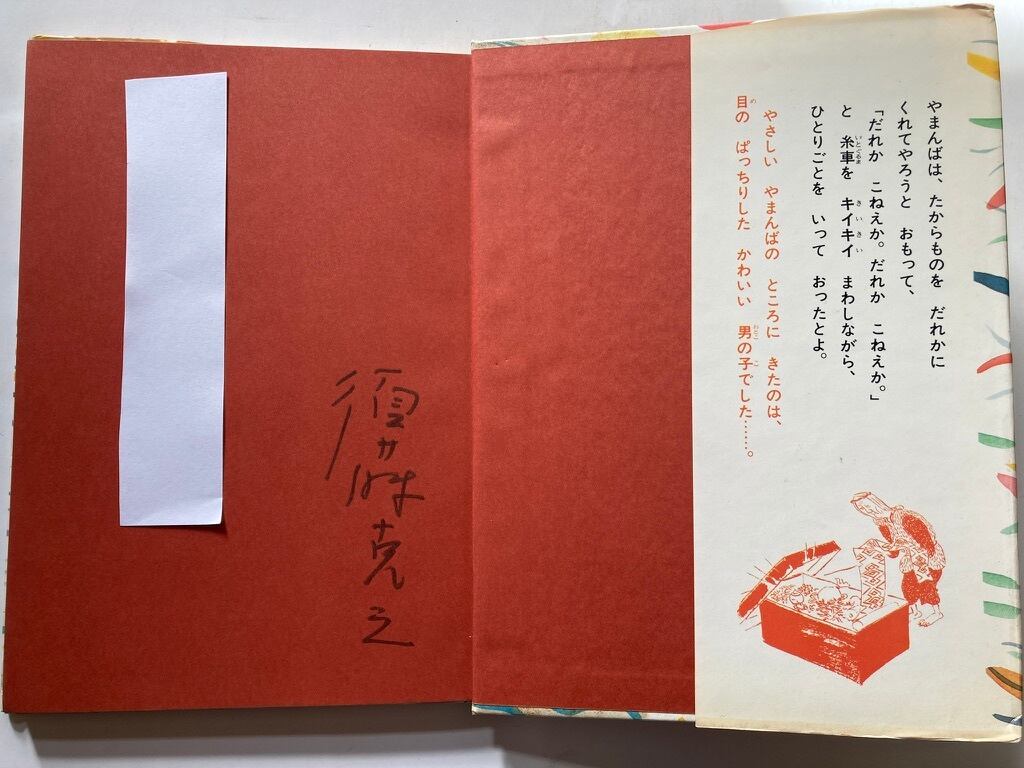 やまんばは、たからものを　だれかに
くれてやろうと　おもって、
「だれか　こねえか。だれか　こねえか。」
と　糸車を　キイキイ　まわしながら、
ひとりごとを　いって　おったとよ。
やさしい　やまんばの　ところに　きたのは、
目の　ぱっちりした　かわいい　男の子でした……。
須藤克之